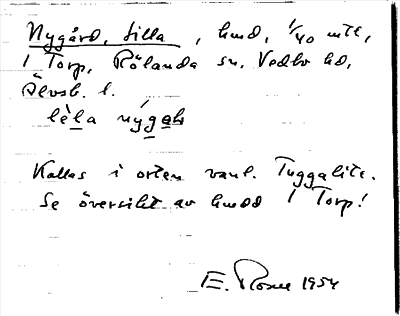 Nygård, Lilla, hmd, 1/40 mtl,
1 Torp, Rölanda sn, Vedbo hd,
Älvsb. l.
lèla nýgah
Kallas i orten vanl. Tuggalite.
Se översikt av hmdd 1 Torp!
E. Rosell 1954